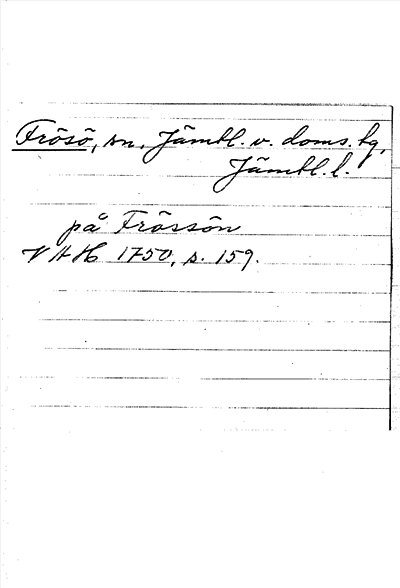 Frösö, sn, Jämtl. v. doms. tg,
Jämtl. l.
på Frössön
VAH 1750, s. 159.